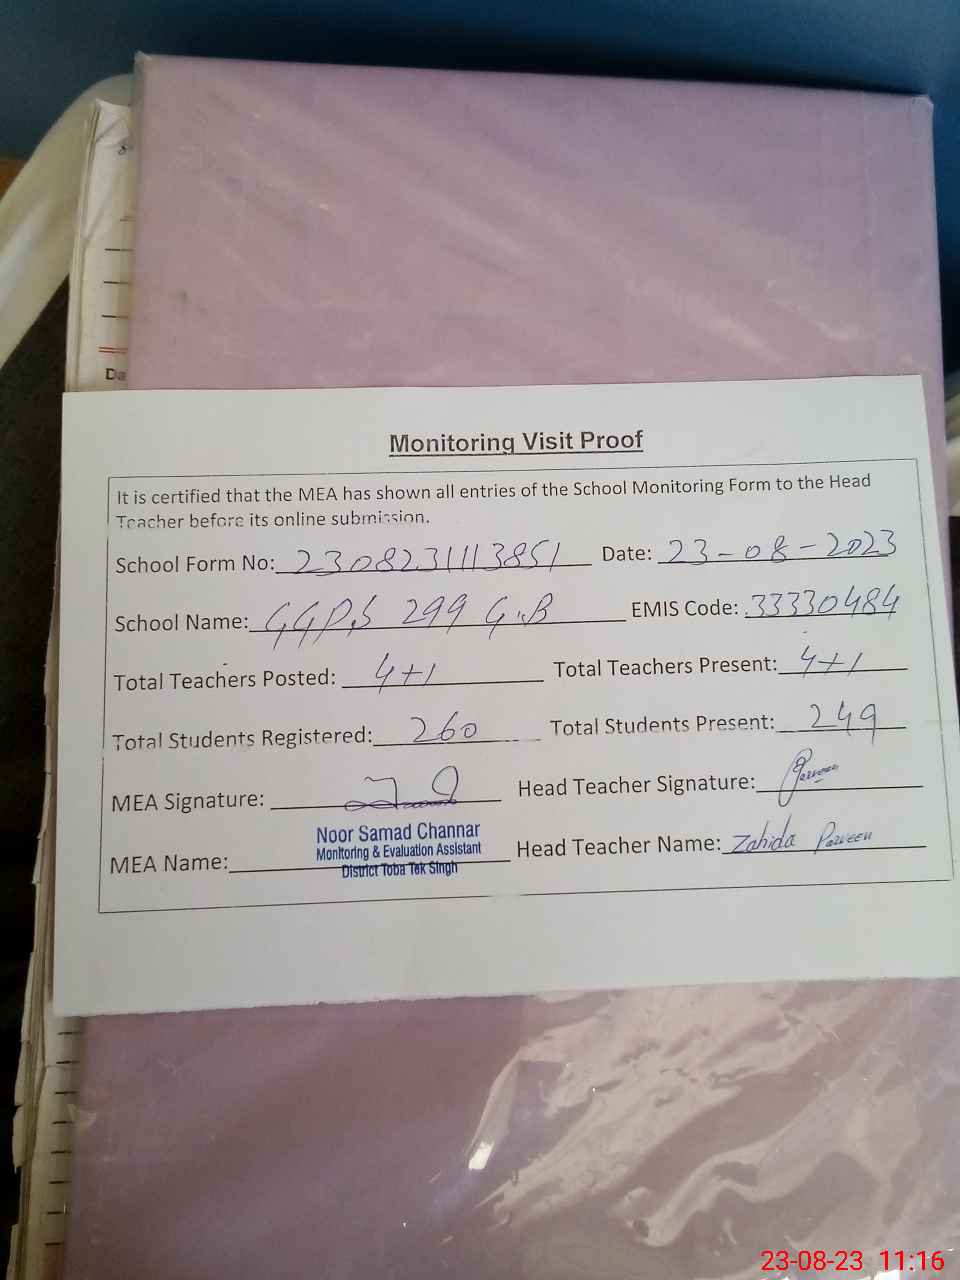 Da
Monitoring Visit Proof
It is certified that the MEA has shown all entries of the School Monitoring Form to the Head
Teacher before its online submission.
School Form No: 2308231113851 Date: 23-08-2023
School Name: GGPS 299 G.B EMIS Code: 33330484
Total Teachers Posted: 4+1 Total Teachers Present: 4+1
Total Students Registered: 260 Total Students Present: 249
MEA Signature: Head Teacher Signature: Parveen
Noor Samad Channar
Monitoring & Evaluation Assistant
District Toba Tek Singh
MEA Name: Head Teacher Name: Zahida Parveen
23-08-23 11:16